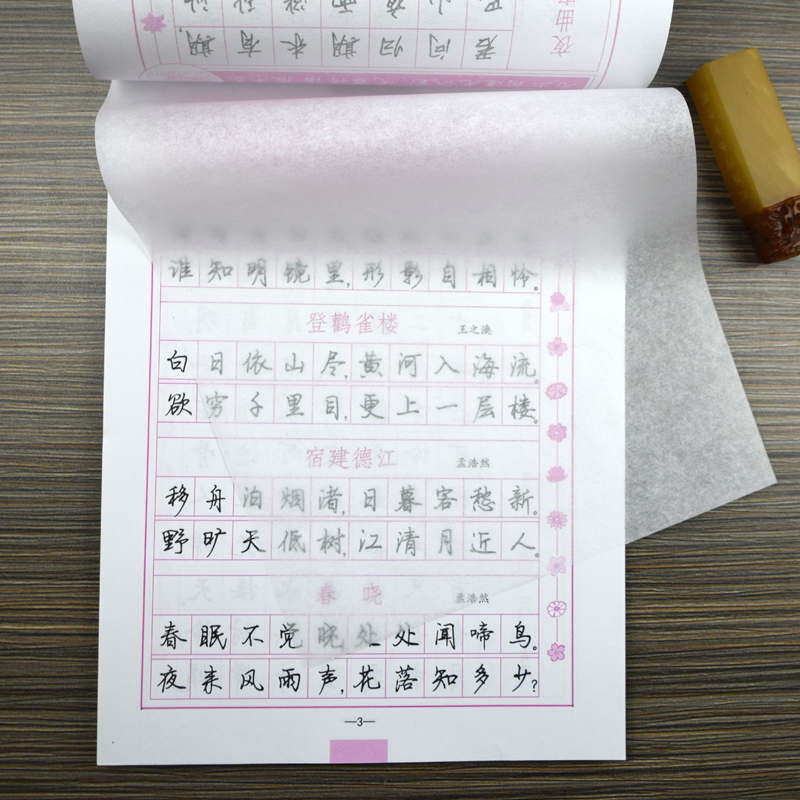 君问归期未有期，
夜曲
谁知明镜里，形影自相怜。
登鹳雀楼 王之涣
白日依山尽，黄河入海流。
欲穷千里目，更上一层楼。
宿建德江 孟浩然
移舟泊烟渚，日暮客愁新。
野旷天低树，江清月近人。
春晓 孟浩然
春眠不觉晓，处处闻啼鸟。
夜来风雨声，花落知多少？
—3—